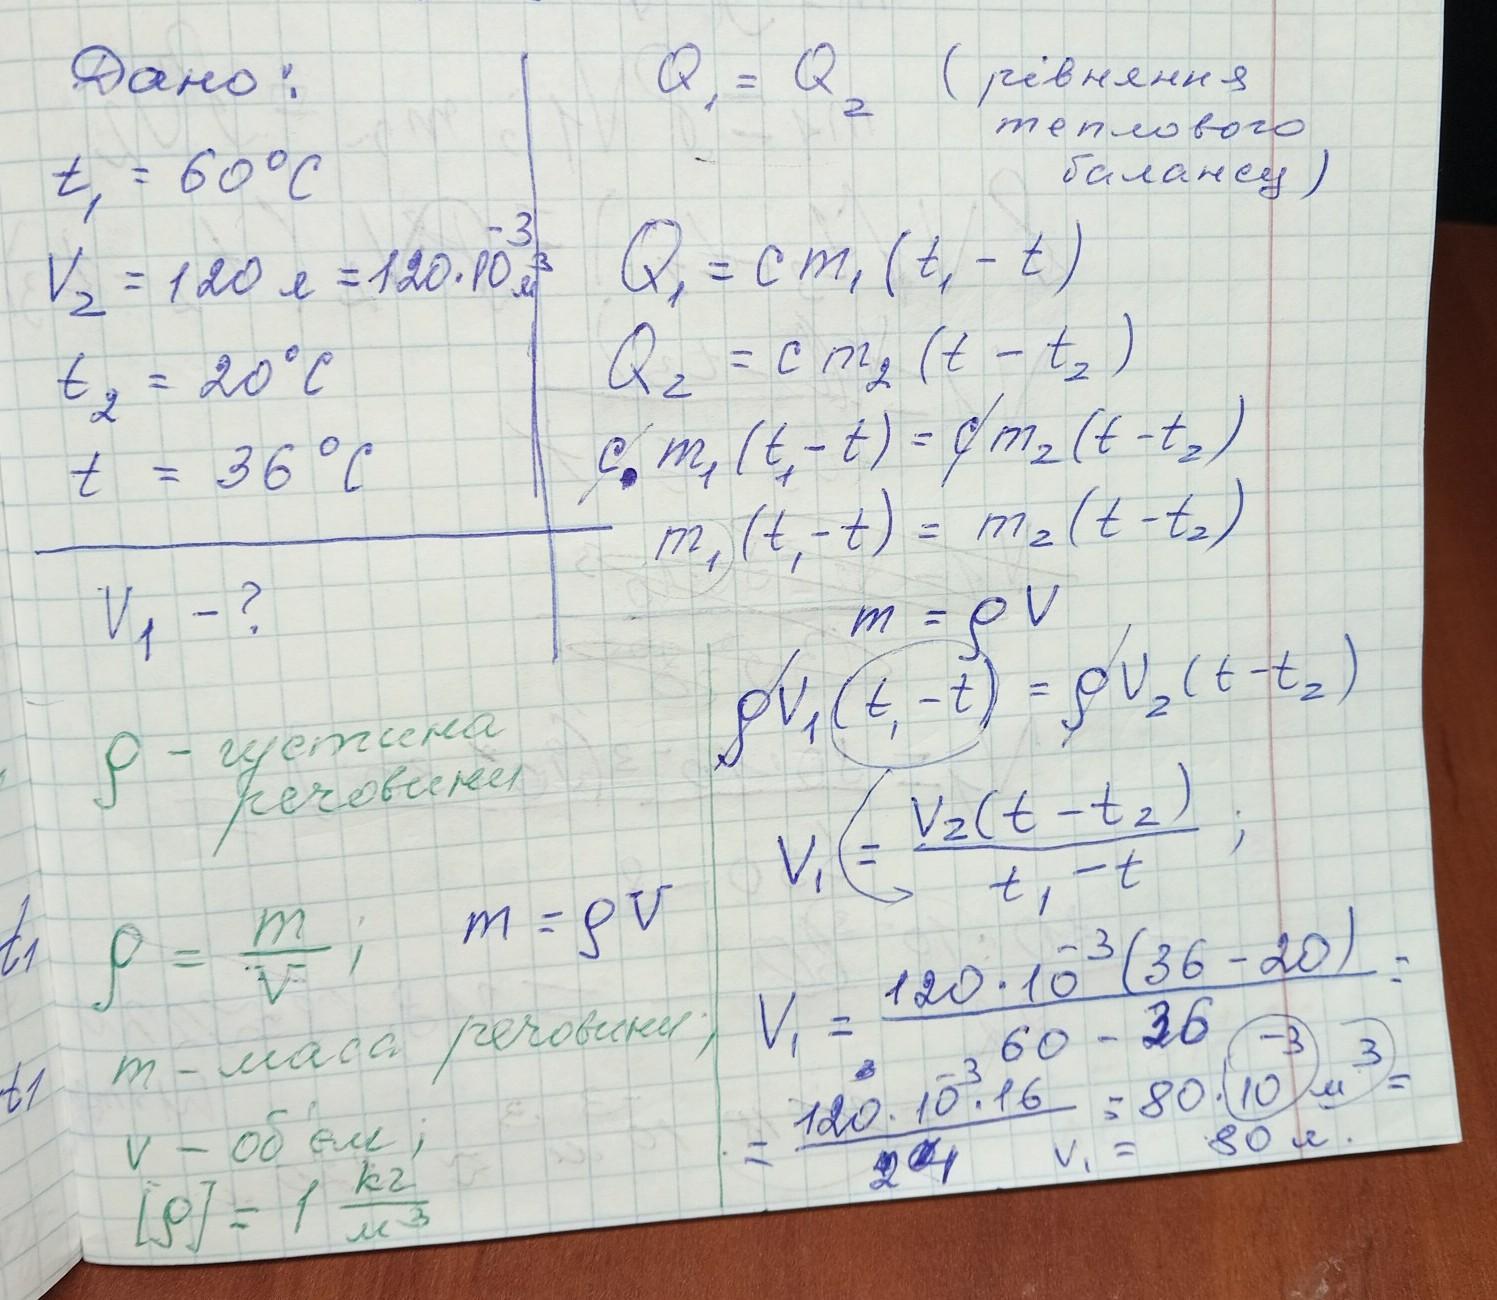 Дано:
t₁ = 60°C
V₂ = 120 л = 120·10⁻³ м³
t₂ = 20°C
t = 36°C
V₁ - ?
Q₁ = Q₂ (рівняння
теплового
балансу)
Q₁ = c m₁ (t₁ - t)
Q₂ = c m₂ (t - t₂)
c m₁ (t₁ - t) = c m₂ (t - t₂)
m₁ (t₁ - t) = m₂ (t - t₂)
m = ρV
ρV₁ (t₁ - t) = ρV₂ (t - t₂)
V₁ = V₂(t - t₂) / t₁ - t ;
V₁ = 120·10⁻³(36 - 20) / 60 - 36 =
= 120·10⁻³·16 / 24 = 80·10⁻³ м³ =
V₁ = 80 л.
ρ - густина
речовини
ρ = m / V ; m = ρV
m - маса речовини;
V - об'єм;
[ρ] = 1 кг / м³
t₁
t₁